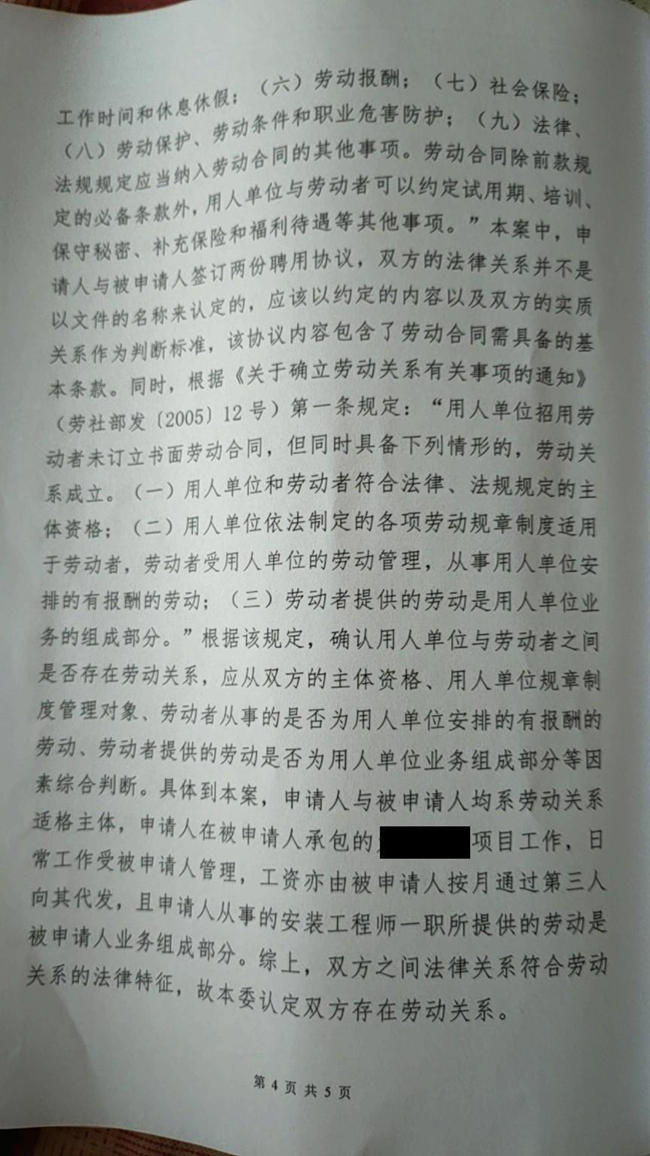 工作时间和休息休假；（六）劳动报酬；（七）社会保险；
（八）劳动保护、劳动条件和职业危害防护；（九）法律、
法规规定应当纳入劳动合同的其他事项。劳动合同除前款规
定的必备条款外，用人单位与劳动者可以约定试用期、培训、
保守秘密、补充保险和福利待遇等其他事项。”本案中，申
请人与被申请人签订两份聘用协议，双方的法律关系并不是
以文件的名称来认定的，应该以约定的内容以及双方的实质
关系作为判断标准，该协议内容包含了劳动合同需具备的基
本条款。同时，根据《关于确立劳动关系有关事项的通知》
（劳社部发〔2005〕12号）第一条规定：“用人单位招用劳
动者未订立书面劳动合同，但同时具备下列情形的，劳动关
系成立。（一）用人单位和劳动者符合法律、法规规定的主
体资格；（二）用人单位依法制定的各项劳动规章制度适用
于劳动者，劳动者受用人单位的劳动管理，从事用人单位安
排的有报酬的劳动；（三）劳动者提供的劳动是用人单位业
务的组成部分。”根据该规定，确认用人单位与劳动者之间
是否存在劳动关系，应从双方的主体资格、用人单位规章制
度管理对象、劳动者从事的是否为用人单位安排的有报酬的
劳动、劳动者提供的劳动是否为用人单位业务组成部分等因
素综合判断。具体到本案，申请人与被申请人均系劳动关系
适格主体，申请人在被申请人承包的项目工作，日
常工作受被申请人管理，工资亦由被申请人按月通过第三人
向其代发，且申请人从事的安装工程师一职所提供的劳动是
被申请人业务组成部分。综上，双方之间法律关系符合劳动
关系的法律特征，故本委认定双方存在劳动关系。
第4页共5页